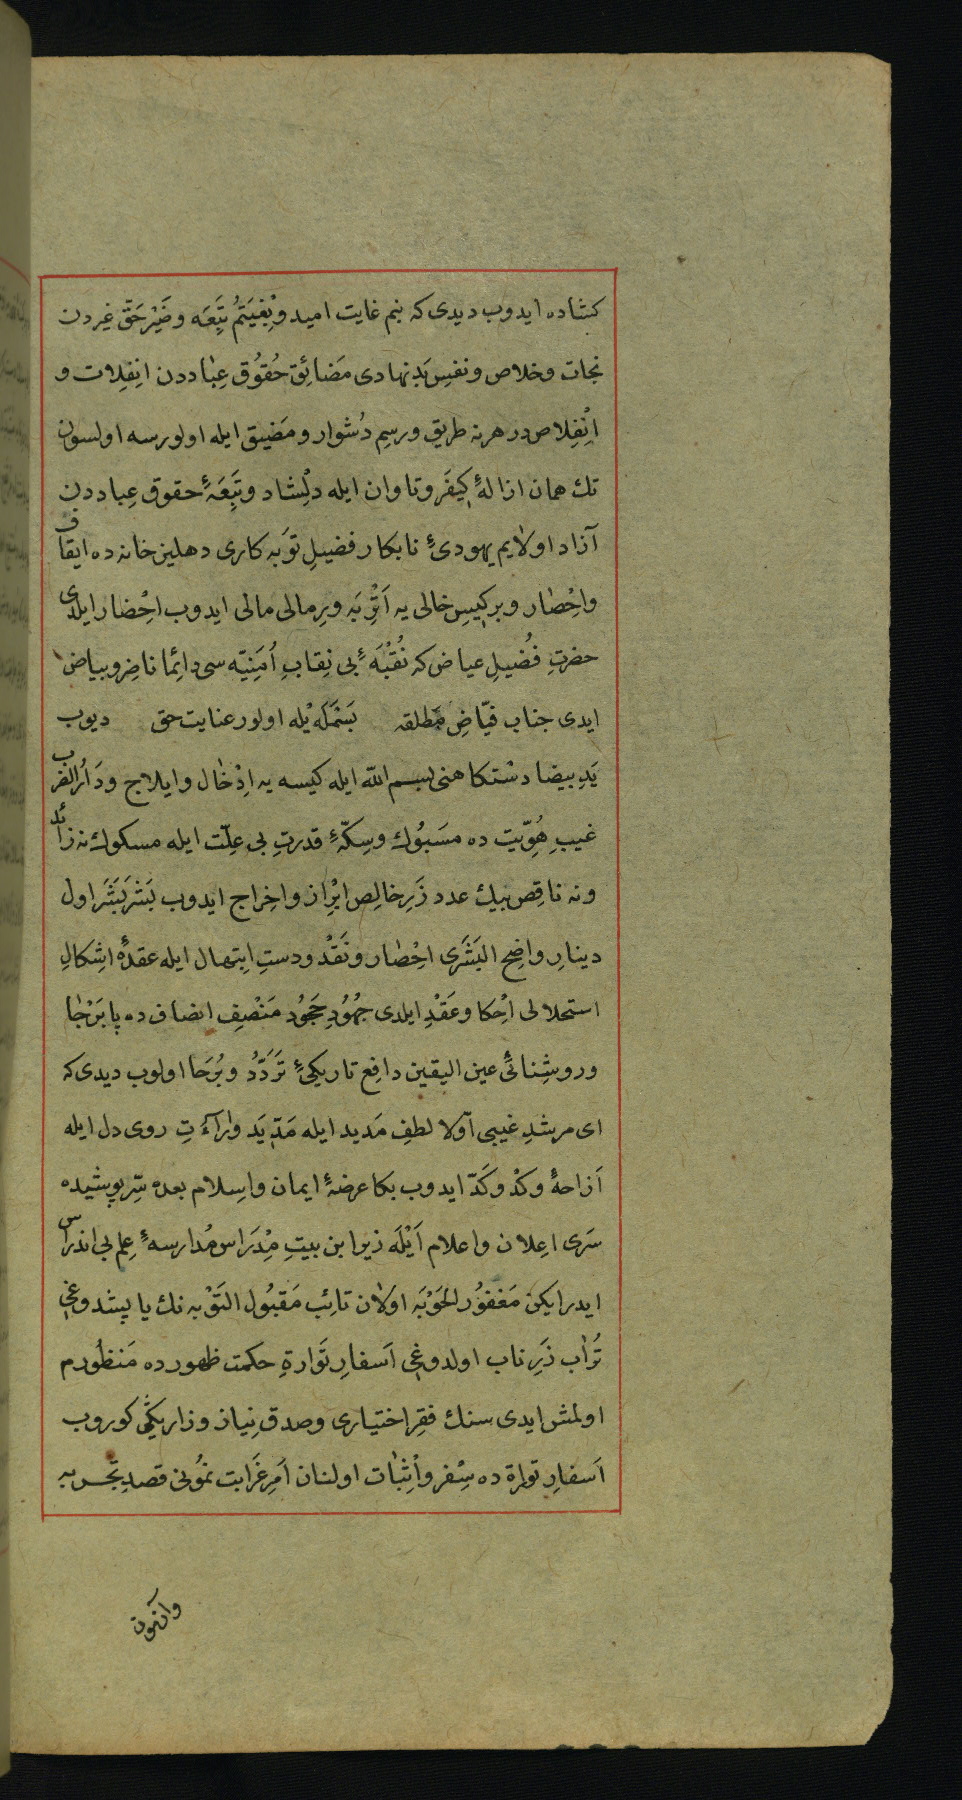 كشاده ايدوب ديدى كه بنم غايت اميد و بُغيَتُم تَبِعَه و ضَيْرِ حَقِّ غيردن
نجات وخلاص و نفسِ بَد نهادى مَضائِقِ حُقُوقِ عِبَاددن انفِلات و
اِنْفِلاصدر هر نه طريق و رسم دُشوار و مَضيق ايله اولورسه اولسون
تك همان ازالهٔ كيفَر و تاوان ايله دِلْشاد و تَبِعَهٔ حقوق عباددن
آزاد اولايم يهودئ نابكار فضيلِ توبه كارى دهليز خانه ده ايقاف
واِحْطار و بر كيسِ خالى يه اَتْرِبَه و رِمالى مالى ايدوب اِحْضار ايلدى
حضرتِ فُضيلِ عياض كه نُقْبَهٔ بى نِقابِ اُمَنِيّه سى دائما ناضِر و بياض
ايدى جناب فيّاضِ مطلقه بَسْمَلَه يْله اولور عنايت حق ديوب
يَدِ بيضا دستكاهنى بسم الله ايله كيسه يه اِدْخال و ايلاج و دَارُ الضرب
غيبِ هُوِيّت ده مسَبُوك و سِكّهٔ قدرتِ بى عِلّت ايله مسكوك نه زائد
و نه ناقِص بيك عدد زَرِ خالِص ابْراز و اخِراج ايدوب بَشَر بَشَرَ اول
دينارِ واضِح البَشَرَى احْطار و نَقْد و دستِ ابتهال ايله عقدهٔ اشِكالِ
استحلالى اِحْكا و عَقْدِ ايلدى جهُودِ جَحُود مَنْصِفِ انصاف ده پا بَرْجا
و روشِنائىِ عين اليقين دافِع تاريكئ تَرَدُّد و بُرَحا اولوب ديدى كه
اى مرشدِ غيبى آولا لطفِ مَديد ايله مَدِّ يَد و اراءَتِ روى دل ايله
اَزاحهٔ وكَدْ وكَدّ ايدوب بكا عرضهٔ ايمان و اسِلام بعده سِرِّ پوشيده
سَرى اعِلان و اعلام اَيْلَه زيرا بن بيتِ مِدْرَاس مُدارسهٔ عِلم بى اندراس
ايدر ايكن مَغفوُر الحَوْبَه اولان تائِب مَقبُول التَوْبه نك يا پيشدوغى
تُراب زَرِ ناب اولدوغى اَسفارِ تَوارةِ حكمت ظهورده مَنظُورم
اولمش ايدى سنك فقرِ اختيارى و صدق نياز و زاريكى كوروب
اَسفارِ توراة ده سِفر و اِثبات اولنان اَمرِ غَرابت نمُونى قصدِ تجربه